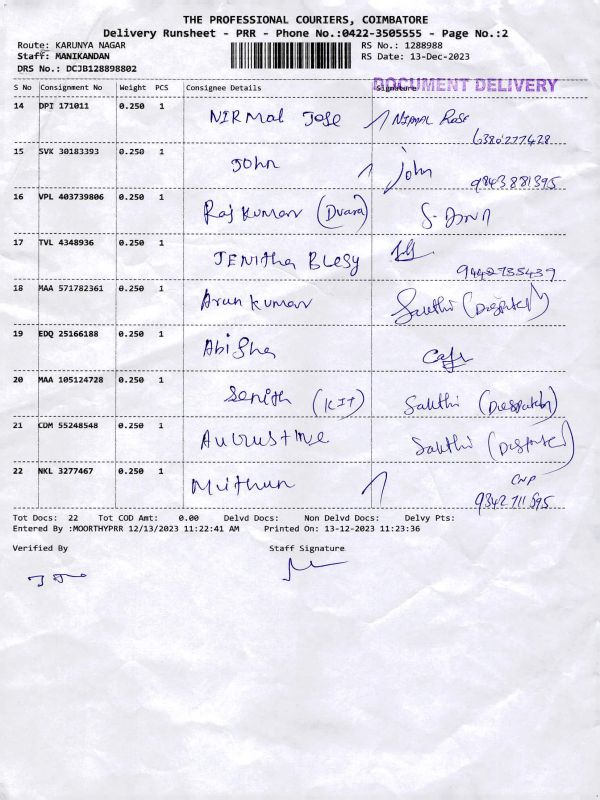 THE PROFESSIONAL COURIERS, COIMBATORE
Delivery Runsheet - PRR - Phone No.:0422-3505555 - Page No.:2
Route: KARUNYA NAGAR RS No.: 1288988
Staff: MANIKANDAN RS Date: 13-Dec-2023
DRS No.: DCJB128898802
DOCUMENT DELIVERY
S No Consignment No Weight PCS Consignee Details Signature
14 DPI 171011 0.250 1 NIRMAL Jose NIRMAL Rose
6380277428
15 SVK 30183393 0.250 1 John John
9843881395
16 VPL 403739806 0.250 1 Raj Kumar (Dvara)
17 TVL 4348936 0.250 1 JENitha BLESY
9442735437
18 MAA 571782361 0.250 1 Arun kumar Sakthi
19 EDQ 25166188 0.250 1 Abisha Cafe
20 MAA 105124728 0.250 1 Senith (KIT) Sakthi
21 CDM 55248548 0.250 1 Augustine Sakthi
22 NKL 3277467 0.250 1 Mithun
9342711695
Tot Docs: 22 Tot COD Amt: 0.00 Delvd Docs: Non Delvd Docs: Delvy Pts:
Entered By :MOORTHYPRR 12/13/2023 11:22:41 AM Printed On: 13-12-2023 11:23:36
Verified By Staff Signature